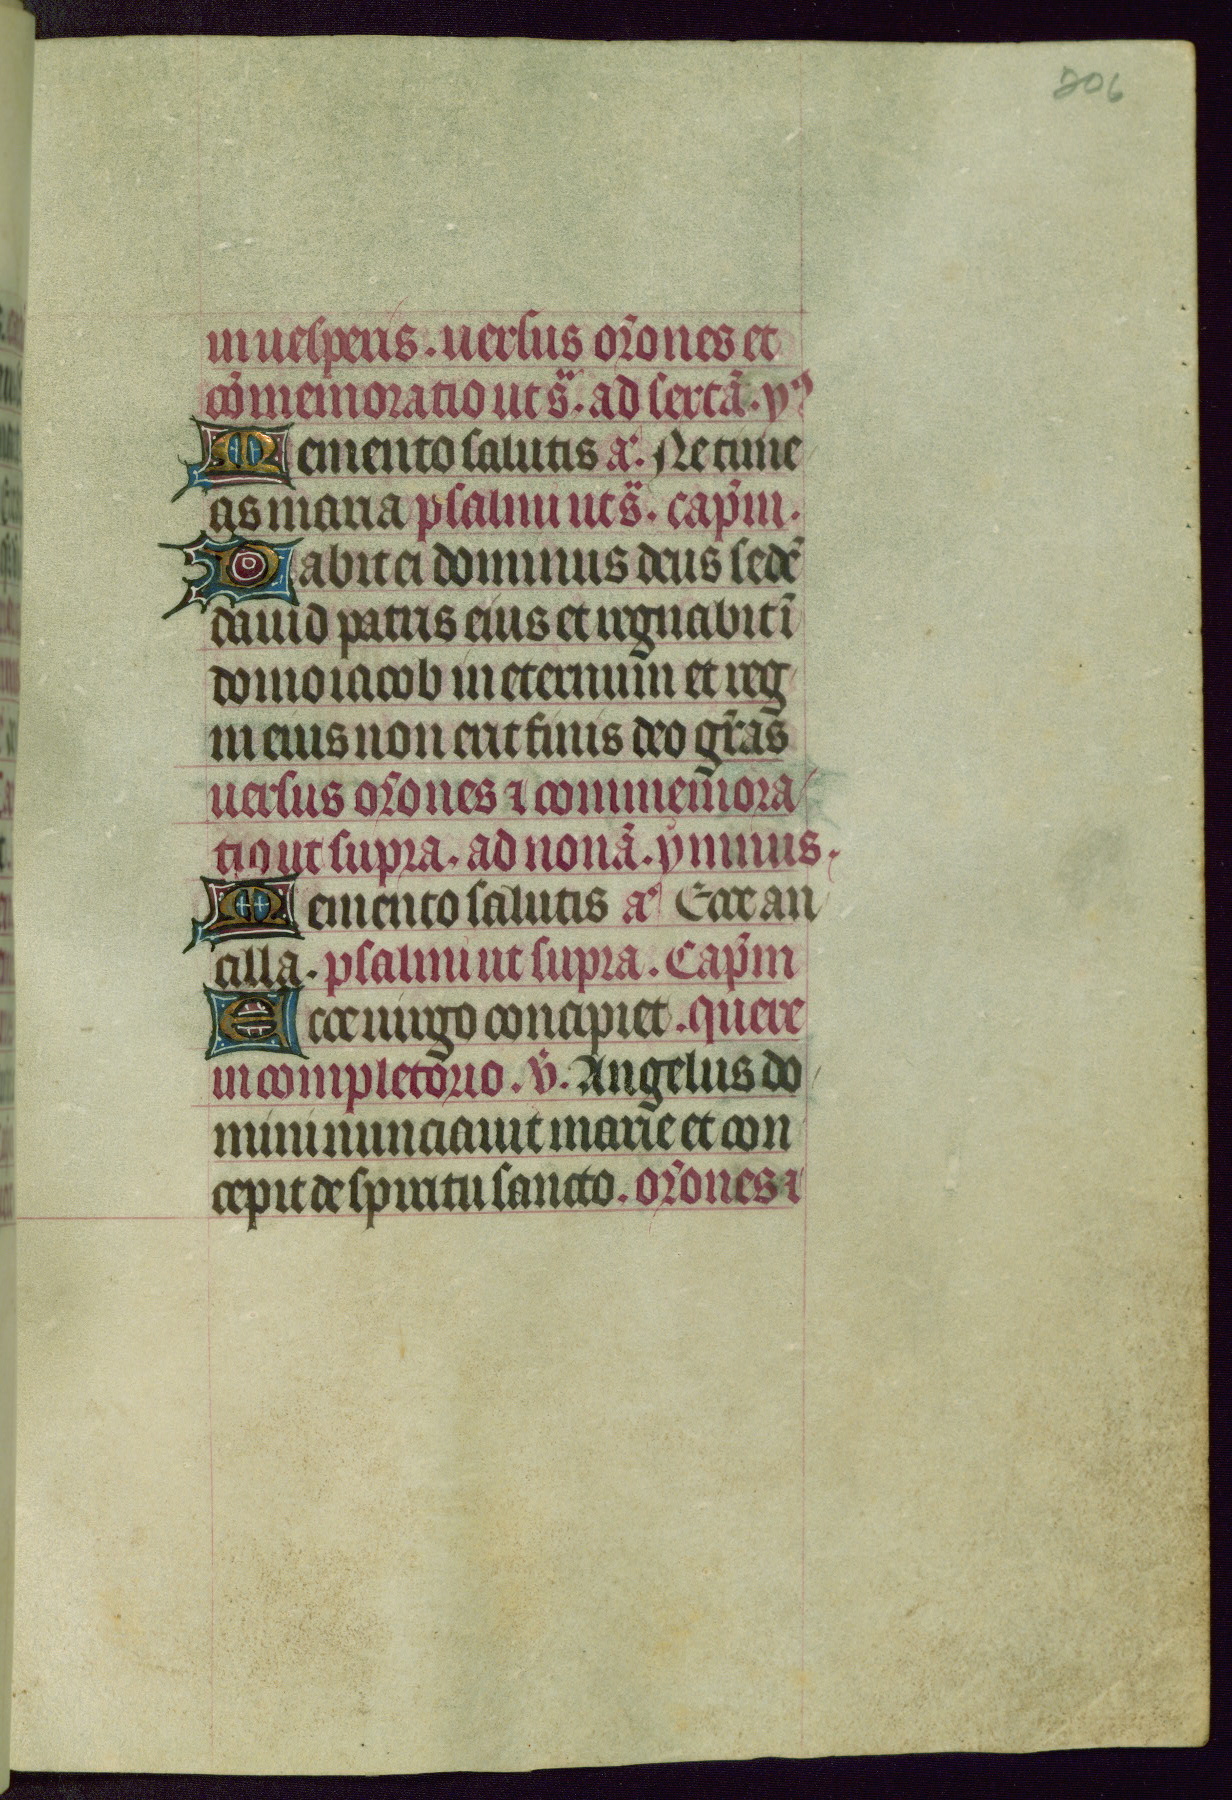 206
in uesperis. uersus or̃ones et
cõmemoratio ut s̃. ad sextã. yꝰ
Memento salutis aᷓ. Ne time
as maria psalmi ut s̃. cap̃m.
Dabit ei dominus deus sedẽ
dauid patris eius et regnabit ĩ
domo iacob in eternum et reg
ni eius non erit finis deo gr̃as
uersus or̃ones ⁊ commemora
tio ut supra. ad nonã. ymnus.
Memento salutis aᷓ Ecce an
cilla. psalmi ut supra. Cap̃m
Ecce uirgo concipiet. quere
in completorio. ṽ. Angelus do
mini nunciauit marie et con
cepit de spiritu sancto. or̃ones ⁊